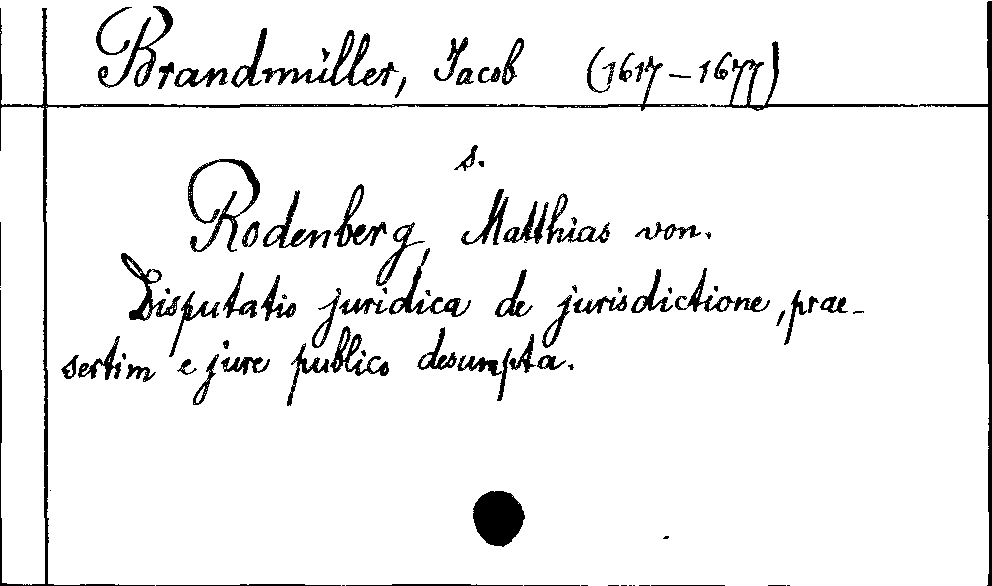 Brandmüller, Jacob (1617-1677)
s.
Rodenberg, Matthias von.
Disputatio juridica de jurisdictione, prae-
sertim e jure publico desumpta.